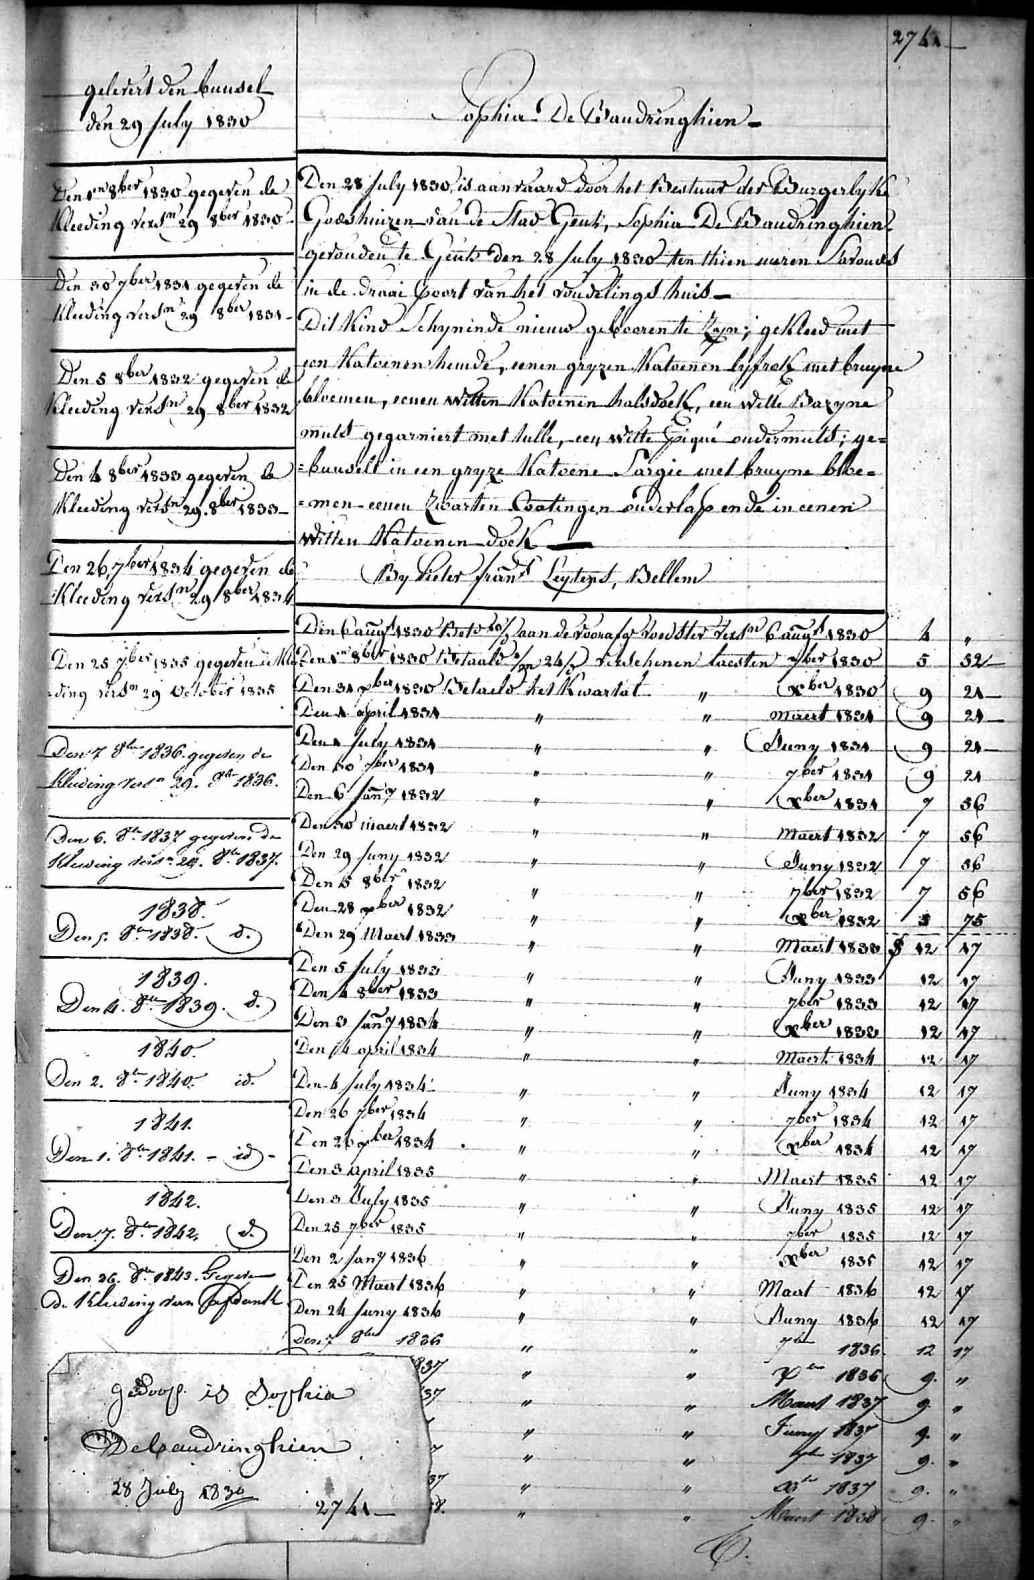 274
gelevert den bunsel
den 29 July 1830
Sophia De Baudringhien
Den 1en 8ber 1830 gegeven de
Kleeding versn 29 8ber 1830
Den 30 7ber 1831 gegeven de
Kleeding versn 29 8ber 1831
Den 5 8ber 1832 gegeven de
Kleeding versn 29 8ber 1832
Den 4 8ber 1833 gegeven de
Kleeding versn 29. 8ber 1833
Den 26, 7ber 1834 gegeven de
Kleeding versn 29 8ber 1834
Den 25 7ber 1835 gegeven de Klee
ding versn 29 October 1835
Den 7 8ber 1836. gegeven de
Kleeding versn 29. 8ber 1836.
Den 6. 8br 1837 gegeven de
Kleeding versn 29. 8br 1837.
1838.
Den 5. 8br 1838. d.
1839.
Den 4. 8br 1839. d.
1840.
Den 2. 8br 1840. id.
1841.
Den 1. 8br 1841. - id -
1842.
Den 7. 8br 1842. d.
Den 26. 8br 1843. Gegeven
de Kleeding van afdank
Den 28 July 1830, is aanvaard door het Bestuur der Burgerlyke
Godshuizen van de Stad Gent, Sophia De Baudringhien
gevonden te Gent den 28 July 1830 ten thien uuren Savonds
in de draai Poort van het vondelings huis
Dit Kind Schynende nieuw gebooren te Zyn; gekleed met
een Katoenen hemde, eenen gryzen Katoenen lyfrok met bruyne
bloemen, eenen witten Katoenen halsdoek, een witte Bazyne
muts gegarniert met tulle, een witte piqué ondermuts; ge=
=bunselt in een gryze Katoene Sargie met bruyne bloe=
=men eenen Zwarten Coatingen onderlap ende in eenen
witten Katoenen doek
By Pieter frans Leytens, Bellem
Den 6 augt 1830 aan de voorafge voedster versn 6 augt 1830 4 "
Den 1en 8ber 1830 Betaald verschenen laesten 7ber 1830 5 52
Den 31 xber 1830 Betaeld het Kwartal " xber 1830 9 21
Den 1 april 1831 " " maert 1831 9 21
Den 1 July 1831 " " Juny 1831 9 21
Den 30 7ber 1831 " " 7ber 1831 9 21
Den 6 Jany 1832 " " xber 1831 7 56
Den 30 maert 1832 " " Maert 1832 7 56
Den 29 Juny 1832 " " Juny 1832 7 56
Den 5 8ber 1832 " " 7ber 1832 7 56
Den 28 xber 1832 " " xber 1832 5 75
Den 29 Maert 1833 " " Maert 1833 12 17
Den 5 July 1833 " " Juny 1833 12 17
Den 4 8ber 1833 " " 7ber 1833 12 17
Den 3 Jany 1834 " " xber 1833 12 17
Den 4 april 1834 " " Maert 1834 12 17
Den 4 July 1834 " " Juny 1834 12 17
Den 26 7ber 1834 " " 7ber 1834 12 17
Den 26 xber 1834 " " xber 1834 12 17
Den 3 April 1835 " " Maert 1835 12 17
Den 3 July 1835 " " Juny 1835 12 17
Den 25 7ber 1835 " " 7ber 1835 12 17
Den 2 Jany 1836 " " xber 1835 12 17
Den 25 Maert 1836 " " Maert 1836 12 17
Den 24 Juny 1836 " " Juny 1836 12 17
Den 7 8ber 1836 " " 7ber 1836 12 17
837 " " xber 1836 9. "
37 " " Maert 1837 9. "
" " Juny 1837 9. "
7 " " 7br 1837 9. "
37 " " xbr 1837 9. "
8. " " Maert 1838 9. "
gedoop is Sophia
De baudringhien
28 July 1830
274